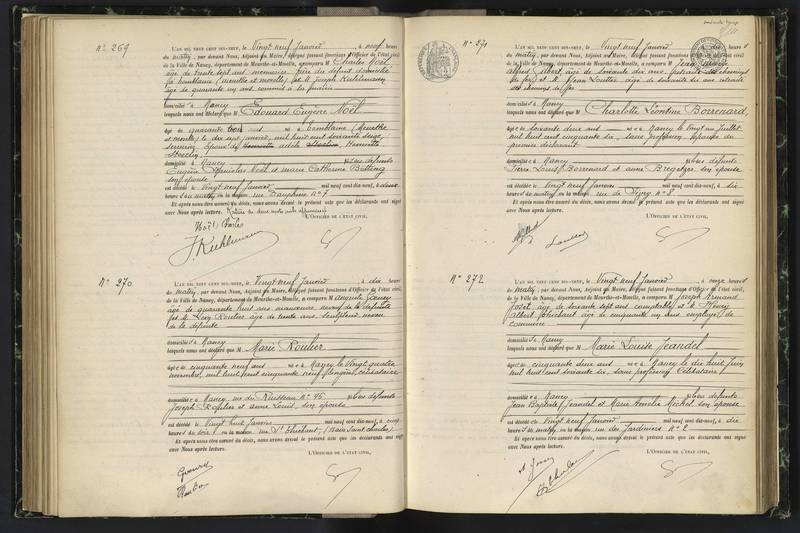 N° 269
L'AN MIL NEUF CENT DIX-NEUF, le Vingt neuf Janvier à neuf heures
du matin, par devant Nous, Adjoint au Maire, délégué faisant fonctions d'Officier de l'état civil
de la Ville de Nancy, département de Meurthe-et-Moselle, a comparu M Charles Noël
âgé de trente sept ans, frère du défunt domicilié
à Tomblaine (Meurthe et Moselle) et M Joseph Kuhlmann
âgé de quarante un ans
domicilié à Nancy
lesquels nous ont déclaré que M Edouard Eugène Noël
âgé de quarante trois ans né à Tomblaine (Meurthe
et Moselle) le dix sept mil huit cent soixante seize,
époux de Henriette
domicilié à Nancy fils des défunts
Eugène Stanislas Noël et Marie Catherine
son épouse
est décédé le Vingt neuf Janvier mil neuf cent dix-neuf, à deux
heures du matin, en la maison rue Dauphine N° 7
Et après nous être assuré du décès, nous avons dressé le présent acte que les déclarants ont signé
avec Nous après lecture. Rature de deux mots nuls approuvée
L'OFFICIER DE L'ÉTAT CIVIL,
Noël Charles
J. Kuhlmann
N° 270
L'AN MIL NEUF CENT DIX-NEUF, le Vingt neuf Janvier à dix heures
du matin, par devant Nous, Adjoint au Maire, délégué faisant fonctions d'Officier de l'état civil
de la Ville de Nancy, département de Meurthe-et-Moselle, a comparu M Auguste
âgé de quarante huit ans manœuvre neveu de la défunte
et M Roulier âgé de trente ans, sculpteur neveu
de la défunte
domiciliés à Nancy
lesquels nous ont déclaré que M Marie Roulier
âgée de cinquante neuf ans née à Nancy le Vingt quatre
novembre, mil huit cent cinquante neuf, célibataire
domiciliée à Nancy, rue du Ruisseau N° 46 fille des défunts
Joseph Roulier et Anne Louis, son épouse
est décédée le Vingt huit Janvier mil neuf cent dix-neuf, à cinq
heures du soir, en la maison rue St Thiébaut, (Bain Saint Charles)
Et après nous être assuré du décès, nous avons dressé le présent acte que les déclarants ont signé
avec Nous après lecture.
L'OFFICIER DE L'ÉTAT CIVIL,
N° 271
L'AN MIL NEUF CENT DIX-NEUF, le Vingt neuf Janvier à dix heures
du matin, par devant Nous, Adjoint au Maire, délégué faisant fonctions d'Officier de l'état civil
de la Ville de Nancy, département de Meurthe-et-Moselle, a comparu M Jean
Alfred âgé de soixante dix ans, retraité des chemins
de fer et M Jean âgé de soixante dix ans retraité
des chemins de fer
domiciliés à Nancy
lesquels nous ont déclaré que M Charlotte Léontine Borrenard,
âgée de soixante deux ans née à Nancy le Vingt un Juillet
mil huit cent cinquante six, sans profession épouse du
premier déclarant
domiciliée à Nancy fille des défunts
Pierre Louis Borrenard et Anne son épouse
est décédée le Vingt neuf Janvier mil neuf cent dix-neuf, à dix
heures du matin, en la maison rue de N° 8
Et après nous être assuré du décès, nous avons dressé le présent acte que les déclarants ont signé
avec Nous après lecture.
L'OFFICIER DE L'ÉTAT CIVIL,
N° 272
L'AN MIL NEUF CENT DIX-NEUF, le Vingt neuf Janvier à onze heures
du matin, par devant Nous, Adjoint au Maire, délégué faisant fonctions d'Officier de l'état civil
de la Ville de Nancy, département de Meurthe-et-Moselle, a comparu M Joseph Armand
âgé de soixante sept ans comptable, et M Henry
Albert âgé de cinquante un ans employé de
commerce
domiciliés à Nancy
lesquels nous ont déclaré que M Marie Louise Jeandel
âgée de cinquante deux ans née à Nancy le dix huit Juin
mil huit cent soixante six, sans profession Célibataire
domiciliée à Nancy fille des défunts
Jean Baptiste Jeandel et Marie Amélie Michel son épouse
est décédée le Vingt neuf Janvier mil neuf cent dix-neuf, à dix
heures du matin, en la maison rue des Jardiniers N° 2
Et après nous être assuré du décès, nous avons dressé le présent acte que les déclarants ont signé
avec Nous après lecture.
L'OFFICIER DE L'ÉTAT CIVIL,